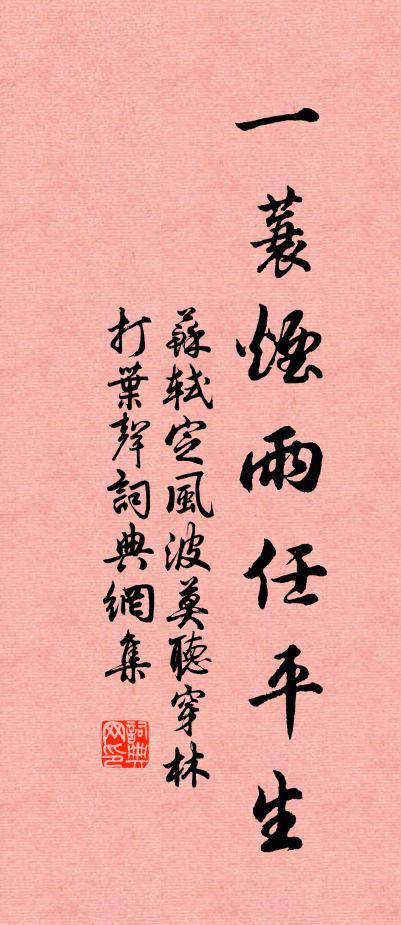 一蓑煙雨任平生
蘇軾定風波莫聽穿林
打葉聲詞典網集
詞典
网印